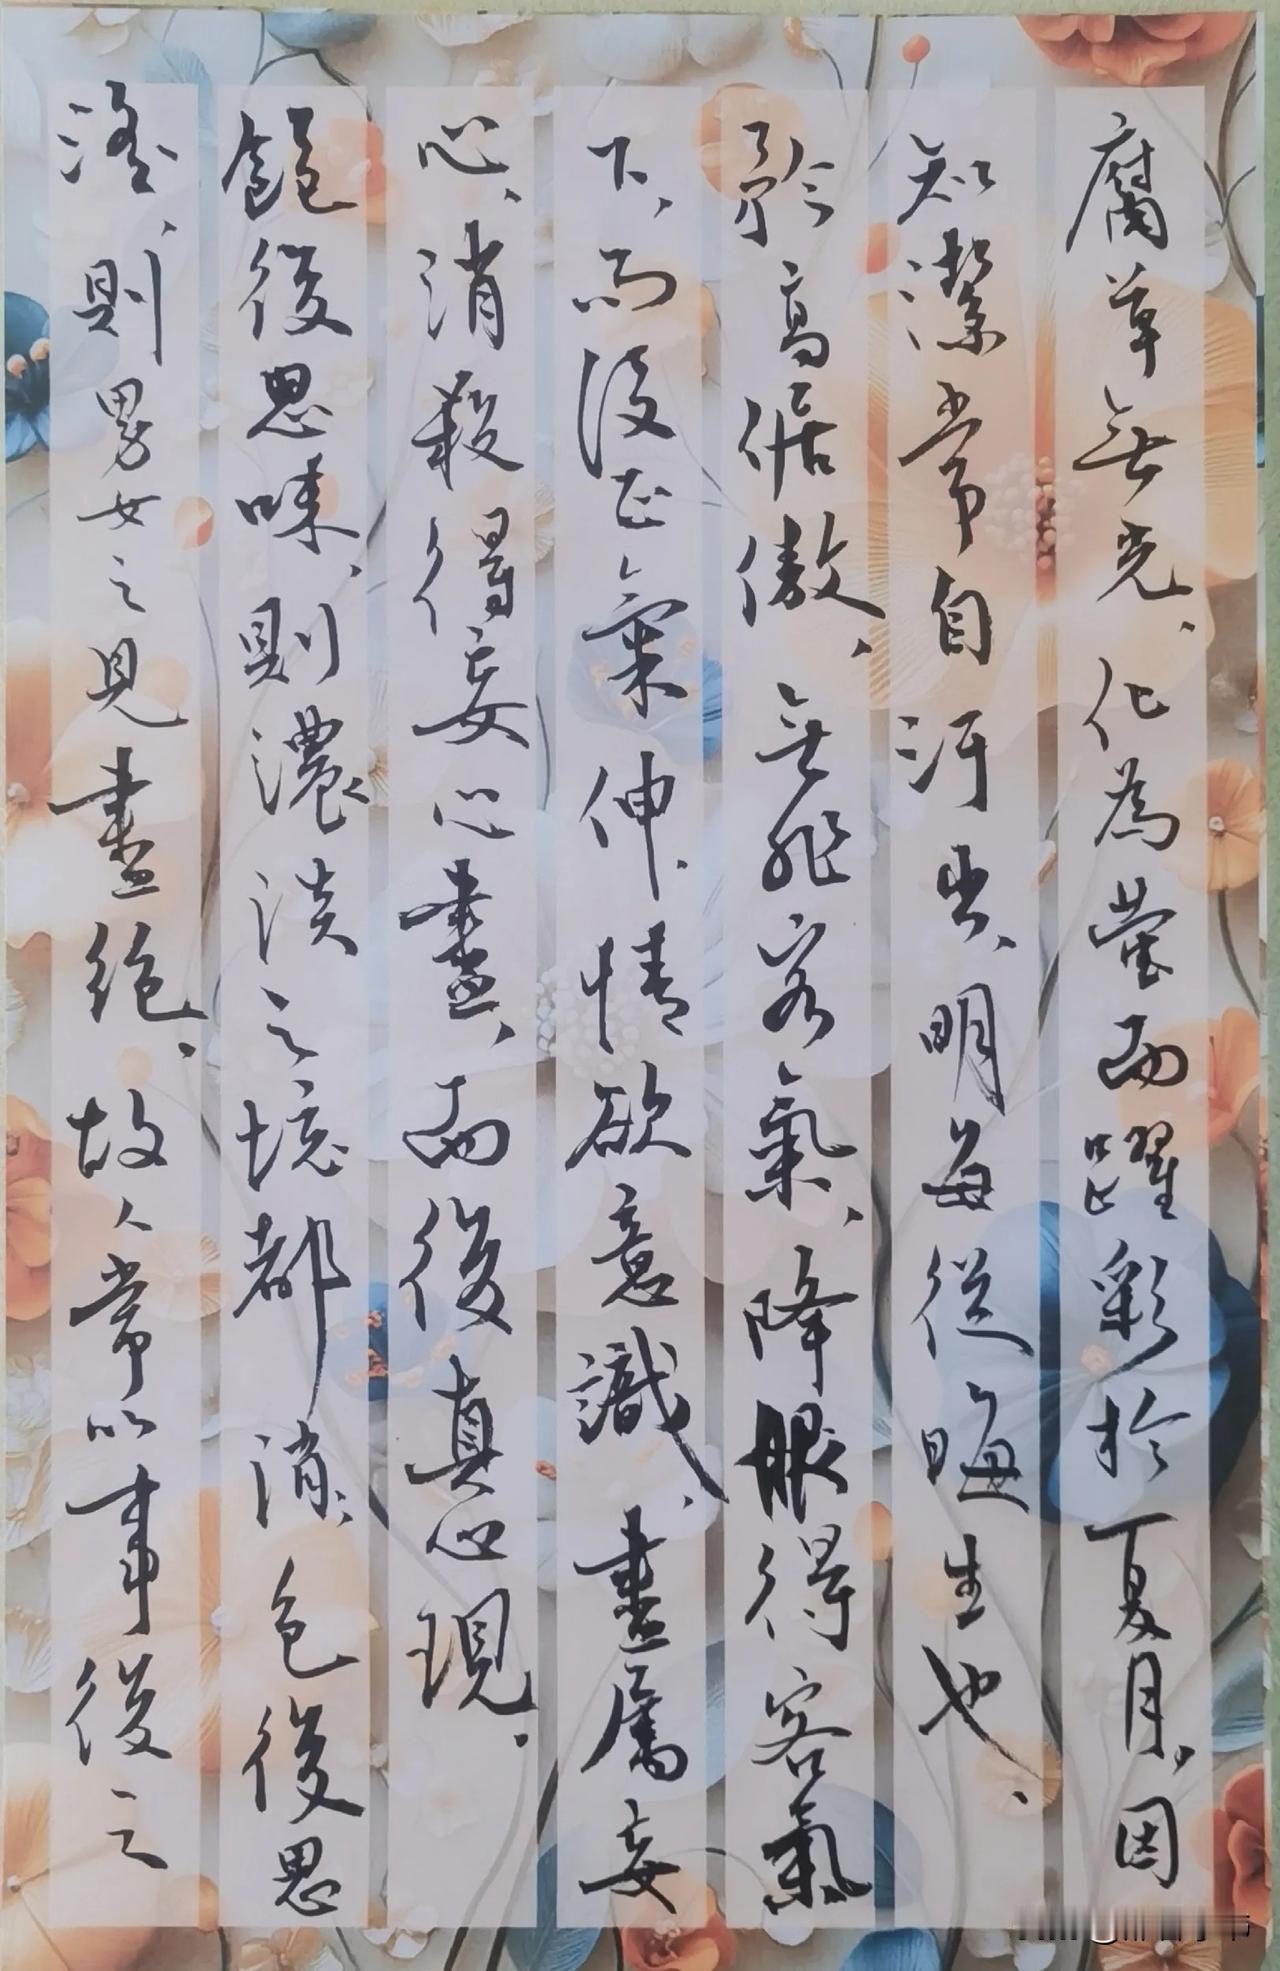 腐草無光、化為螢而躍彩於夏月、因
知潔常自汙出、明每從晦生也、
矜高倨傲、無非客氣、降服得客氣
下、而後正氣伸、情欲意識、盡屬妄
心、消殺得妄心盡、而後真心現、
飽後思味、則濃淡之境都消、色後思
淫、則男女之見盡絕、故人常以事後之